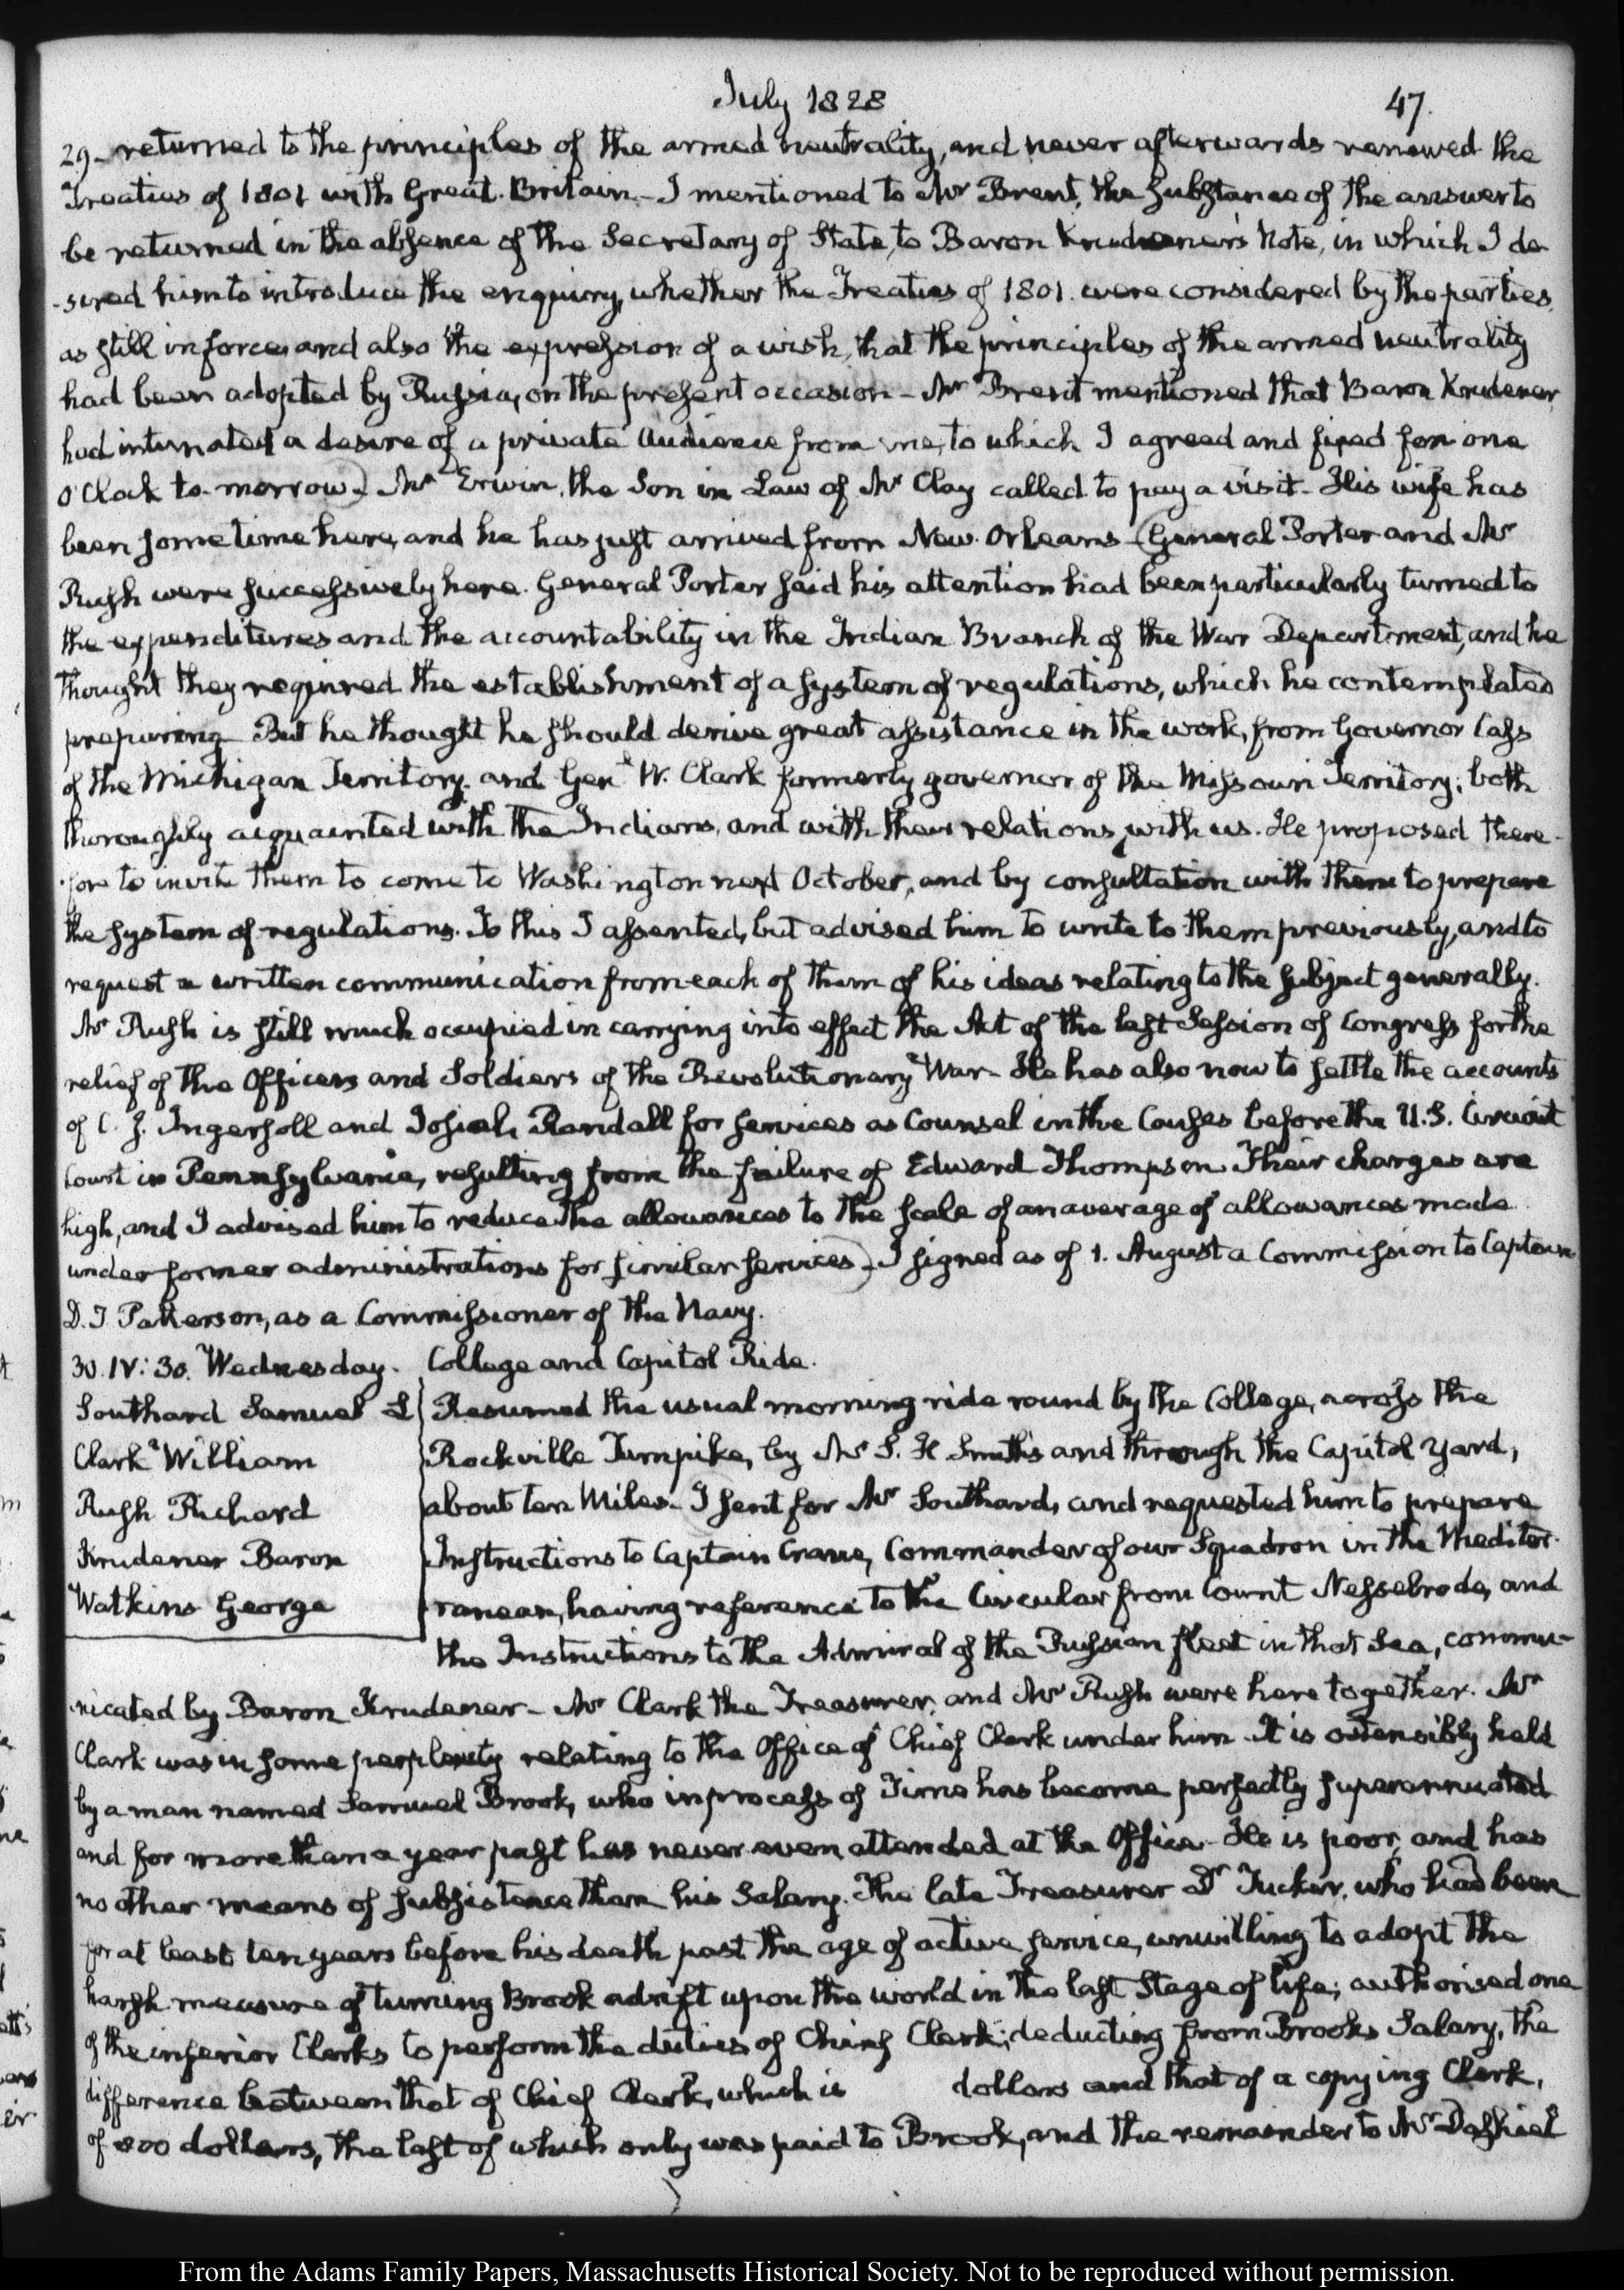 July 1828 47.
29- returned to the principles of the armed neutrality, and never afterwards renewed the
Treaties of 1801 with Great-Britain - I mentioned to Mr Brent, the substance of the answer to
be returned in the absence of the Secretary of State, to Baron Krudener's Note, in which I de-
-sired him to introduce the enquiry, whether the Treaties of 1801. were considered by the parties,
as still in force, and also the expression of a wish, that the principles of the armed neutrality
had been adopted by Russia, on the present occasion - Mr Brent mentioned that Baron Krudener
had intimated a desire of a private Audience from me, to which I agreed and fixed for one
O'Clock to-morrow) - Mr Erwin, the Son in Law of Mr Clay called to pay a visit - His wife has
been some time here, and he has just arrived from New-Orleans - (General Porter and Mr
Rush were successively here. General Porter said his attention had been particularly turned to
the expenditures and the accountability in the Indian Branch of the War Department, and he
thought they required the establishment of a system of regulations, which he contemplated
preparing - But he thought he should derive great assistance in the work, from Governor Cass
of the Michigan Territory, and Genl W. Clark formerly governor of the Missouri Territory; both
thoroughly acquainted with the Indians, and with their relations with us. He proposed there-
-fore to invite them to come to Washington next October, and by consultation with them to prepare
the system of regulations. To this I assented, but advised him to write to them previously, and to
request a written communication from each of them of his ideas relating to the subject generally.
Mr Rush is still much occupied in carrying into effect the Act of the last Session of Congress for the
relief of the Officers and Soldiers of the Revolutionary War - He has also now to settle the accounts
of C. J. Ingersoll and Josiah Randall for services as Counsel in the Causes before the U.S. Circuit
Court in Pennsylvania, resulting from the failure of Edward Thompson. Their charges are
high, and I advised him to reduce the allowances to the scale of an average of allowances made
under former administrations for similar services) - I signed as of 1. August a Commission to Captain
D. T. Patterson, as a Commissioner of the Navy.
30. IV: 30. Wednesday. College and Capitol Ride.
Southard Samuel L Resumed the usual morning ride round by the College, across the
Clark William Rockville Turnpike, by Mr S. H. Smith's and through the Capitol yard,
Rush Richard about ten Miles - I sent for Mr Southard, and requested him to prepare
Krudener Baron Instructions to Captain Crane, Commander of our Squadron in the Mediter-
Watkins George ranean, having reference to the Circular from Count Nesselrode, and
the Instructions to the Admiral of the Russian fleet in that Sea, commu-
-nicated by Baron Krudener - Mr Clark the Treasurer, and Mr Rush were here together. Mr
Clark was in some perplexity relating to the Office of Chief Clerk under him. It is ostensibly held
by a man named Samuel Brook, who in process of Time has become perfectly superannuated
and for more than a year past has never even attended at the Office - He is poor, and has
no other means of subsistence than his Salary. The late Treasurer Dr Tucker, who had been
for at least ten years before his death past the age of active service, unwilling to adopt the
harsh measure of turning Brook adrift upon the world in the last Stage of life; authorised one
of the inferior Clerks to perform the duties of Chief Clerk; deducting from Brooks Salary, the
difference between that of Chief Clerk, which is dollars and that of a copying Clerk,
of 800 dollars, the last of which only was paid to Brook, and the remainder to Mr Dashiel
From the Adams Family Papers, Massachusetts Historical Society. Not to be reproduced without permission.